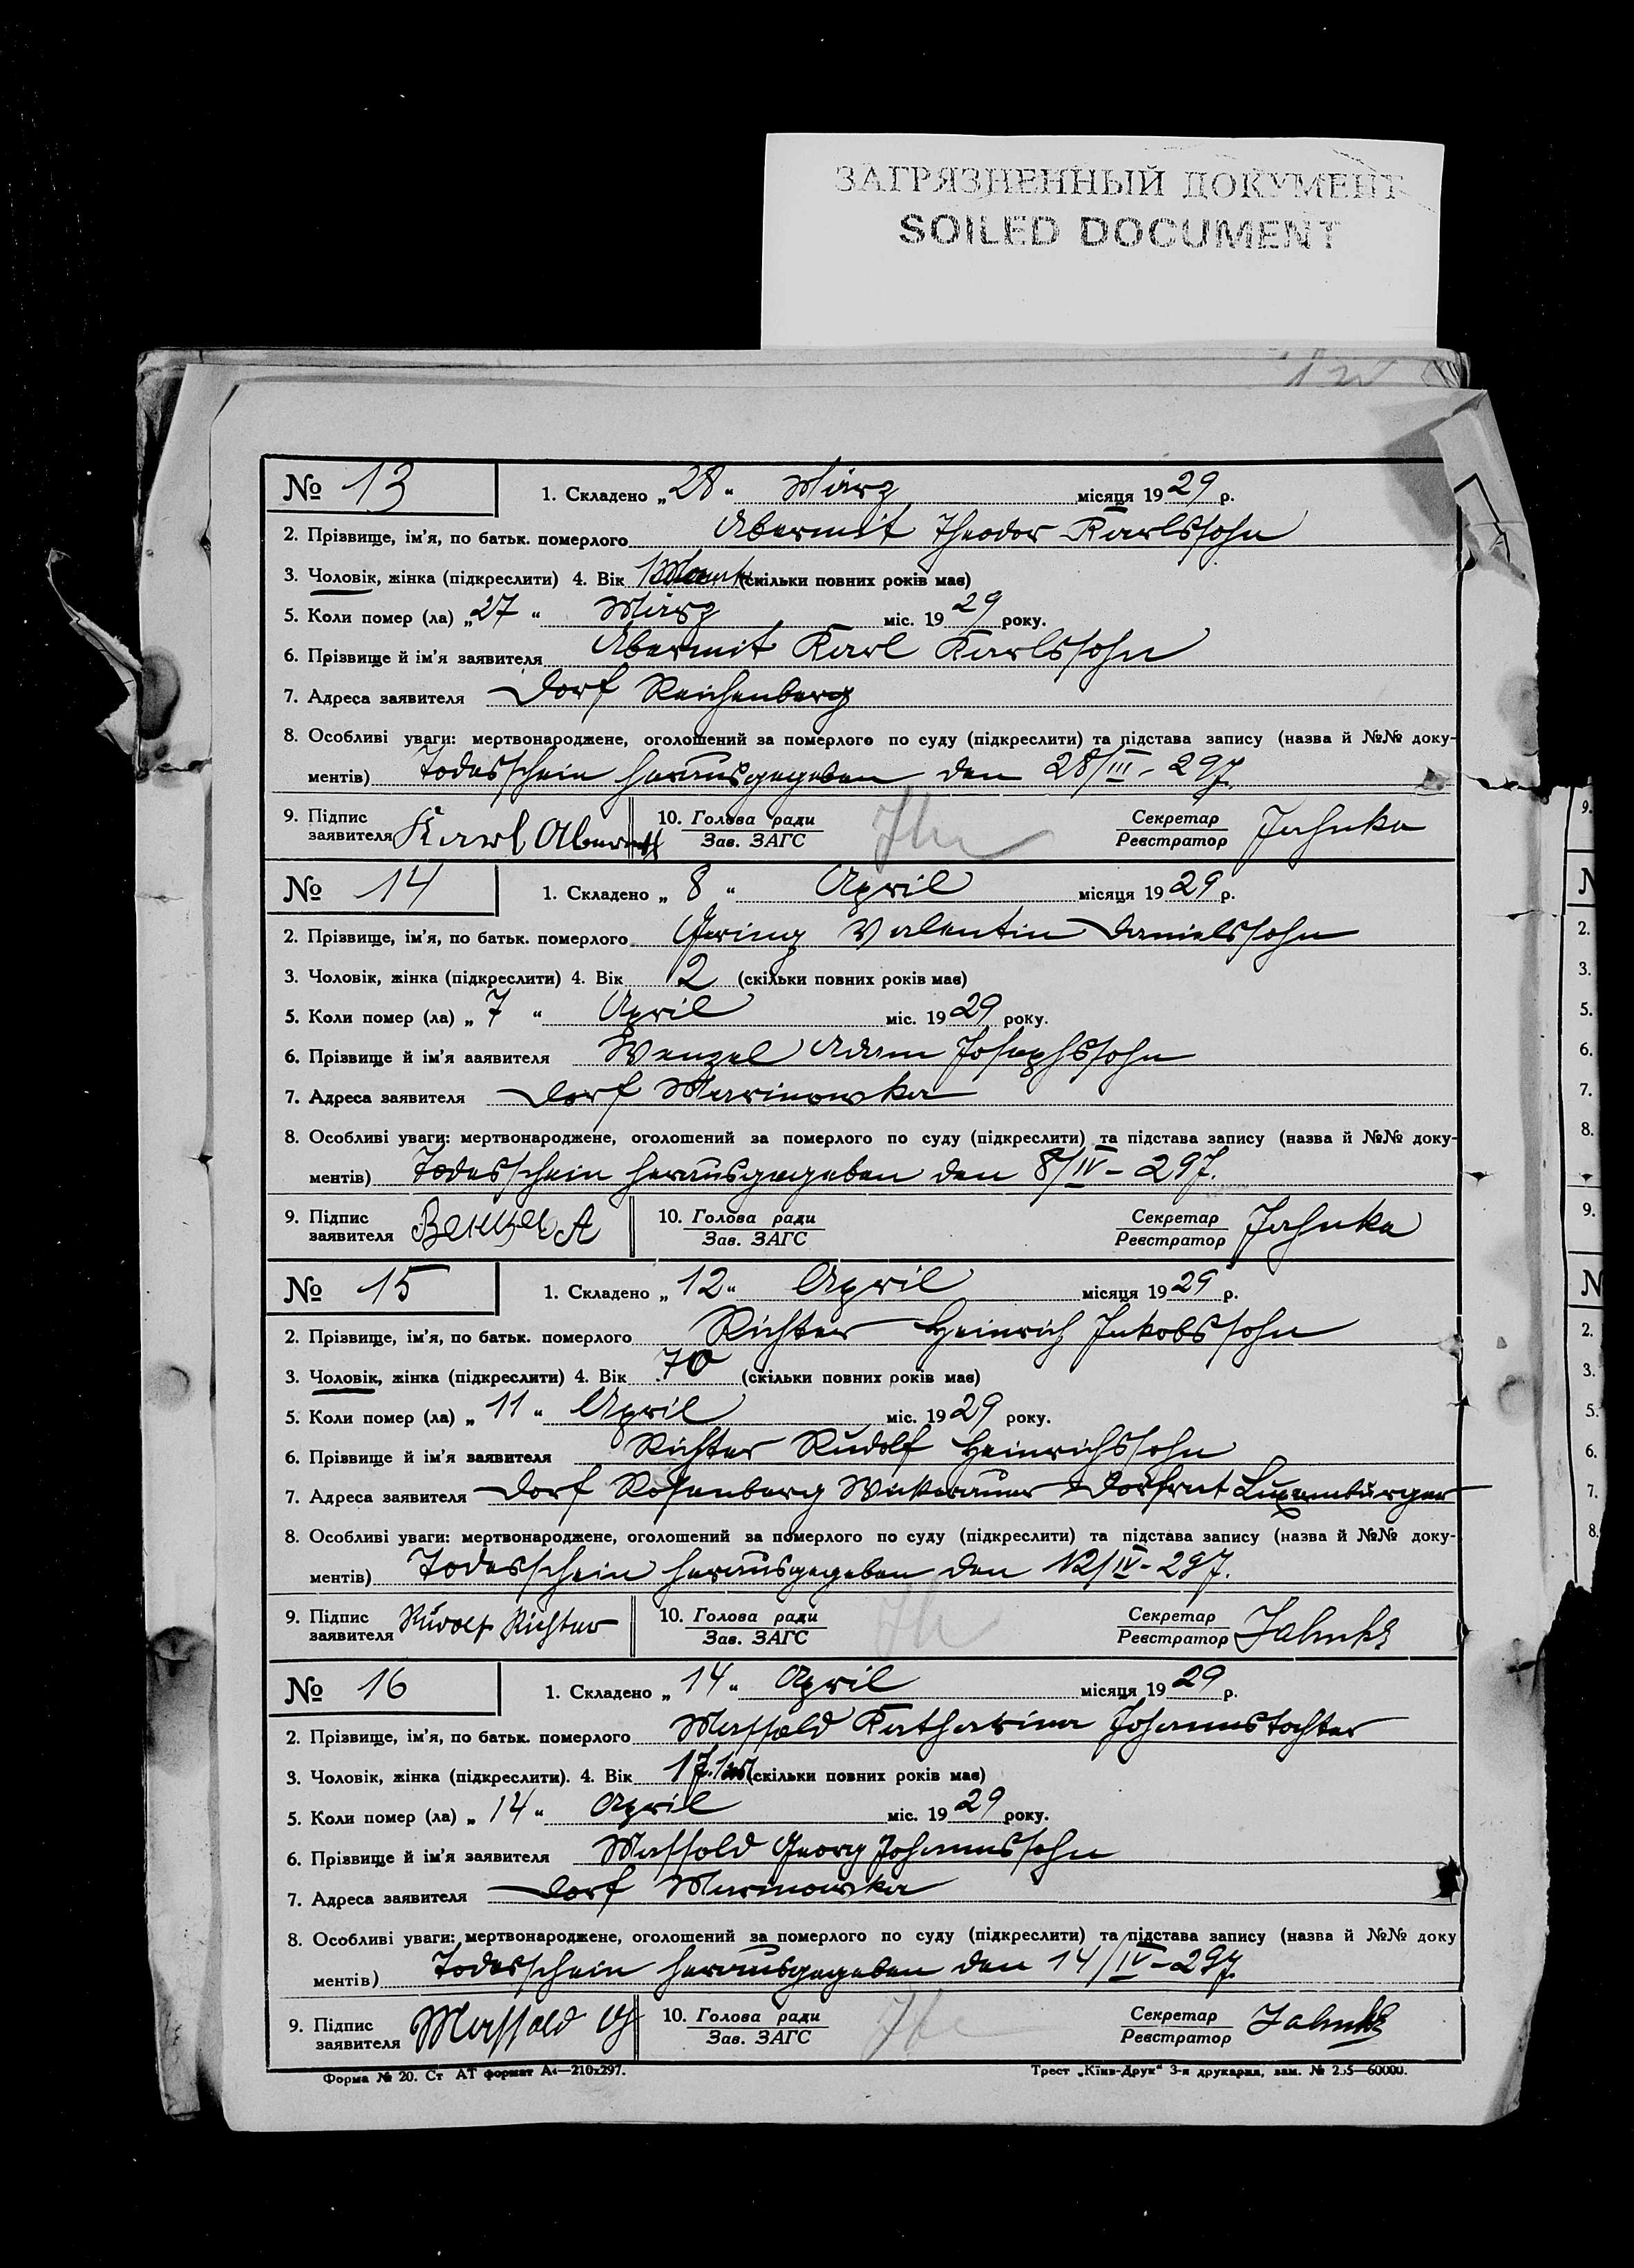 ЗАГРЯЗНЕННЫЙ ДОКУМЕНТ
SOILED DOCUMENT
№ 13 1. Складено „28“ März місяця 1929 р.
2. Прізвище, ім'я, по батьк. померлого Abermit Theodor Karlssohn
3. Чоловік, жінка (підкреслити) 4. Вік (скільки повних років має)
5. Коли помер (ла) „27“ März міс. 1929 року.
6. Прізвище й ім'я заявителя Abermit Karl Karlssohn
7. Адреса заявителя Dorf Reichenberg
8. Особливі уваги: мертвонароджене, оголошений за померлого по суду (підкреслити) та підстава запису (назва й №№ доку-
ментів) Todesschein herausgegeben den 28/III-29J.
9. Підпис заявителя Karl 10. Голова ради Зав. ЗАГС Секретар Реєстратор Jahnke
№ 14 1. Складено „8“ April місяця 1929 р.
2. Прізвище, ім'я, по батьк. померлого Gering Valentin Danielssohn
3. Чоловік, жінка (підкреслити) 4. Вік 2 (скільки повних років має)
5. Коли помер (ла) „7“ April міс. 1929 року.
6. Прізвище й ім'я ааявителя Wenzel Adam Josephssohn
7. Адреса заявителя Dorf Marinowka
8. Особливі уваги: мертвонароджене, оголошений за померлого по суду (підкреслити) та підстава запису (назва й №№ доку-
ментів) Todesschein herausgegeben den 8/IV-29J.
9. Підпис заявителя Венцель А 10. Голова ради Зав. ЗАГС Секретар Реєстратор Jahnke
№ 15 1. Складено „12“ April місяця 1929 р.
2. Прізвище, ім'я, по батьк. померлого Richter Heinrich Jakobssohn
3. Чоловік, жінка (підкреслити) 4. Вік 70 (скільки повних років має)
5. Коли помер (ла) „11“ April міс. 1929 року.
6. Прізвище й ім'я заявителя Richter Rudolf Heinrichssohn
7. Адреса заявителя Dorf Rosenberg Dorfrat Luxemburger
8. Особливі уваги: мертвонароджене, оголошений за померлого по суду (підкреслити) та підстава запису (назва й №№ доку-
ментів) Todesschein herausgegeben den 12/IV-29J.
9. Підпис заявителя Rudolf Richter 10. Голова ради Зав. ЗАГС Секретар Реєстратор Jahnke
№ 16 1. Складено „14“ April місяця 1929 р.
2. Прізвище, ім'я, по батьк. померлого Massold Katharina Johannstochter
3. Чоловік, жінка (підкреслити). 4. Вік (скільки повних років має)
5. Коли помер (ла) „14“ April міс. 1929 року.
6. Прізвище й ім'я заявителя Massold Georg Johannssohn
7. Адреса заявителя Dorf Marinowka
8. Особливі уваги: мертвонароджене, оголошений за померлого по суду (підкреслити) та підстава запису (назва й №№ доку
ментів) Todesschein herausgegeben den 14/IV-29J.
9. Підпис заявителя Massold G 10. Голова ради Зав. ЗАГС Секретар Реєстратор Jahnke
Форма № 20. Ст АТ формат А4—210х297. Трест „Київ-Друк“ 3-я друкарня, зам. №